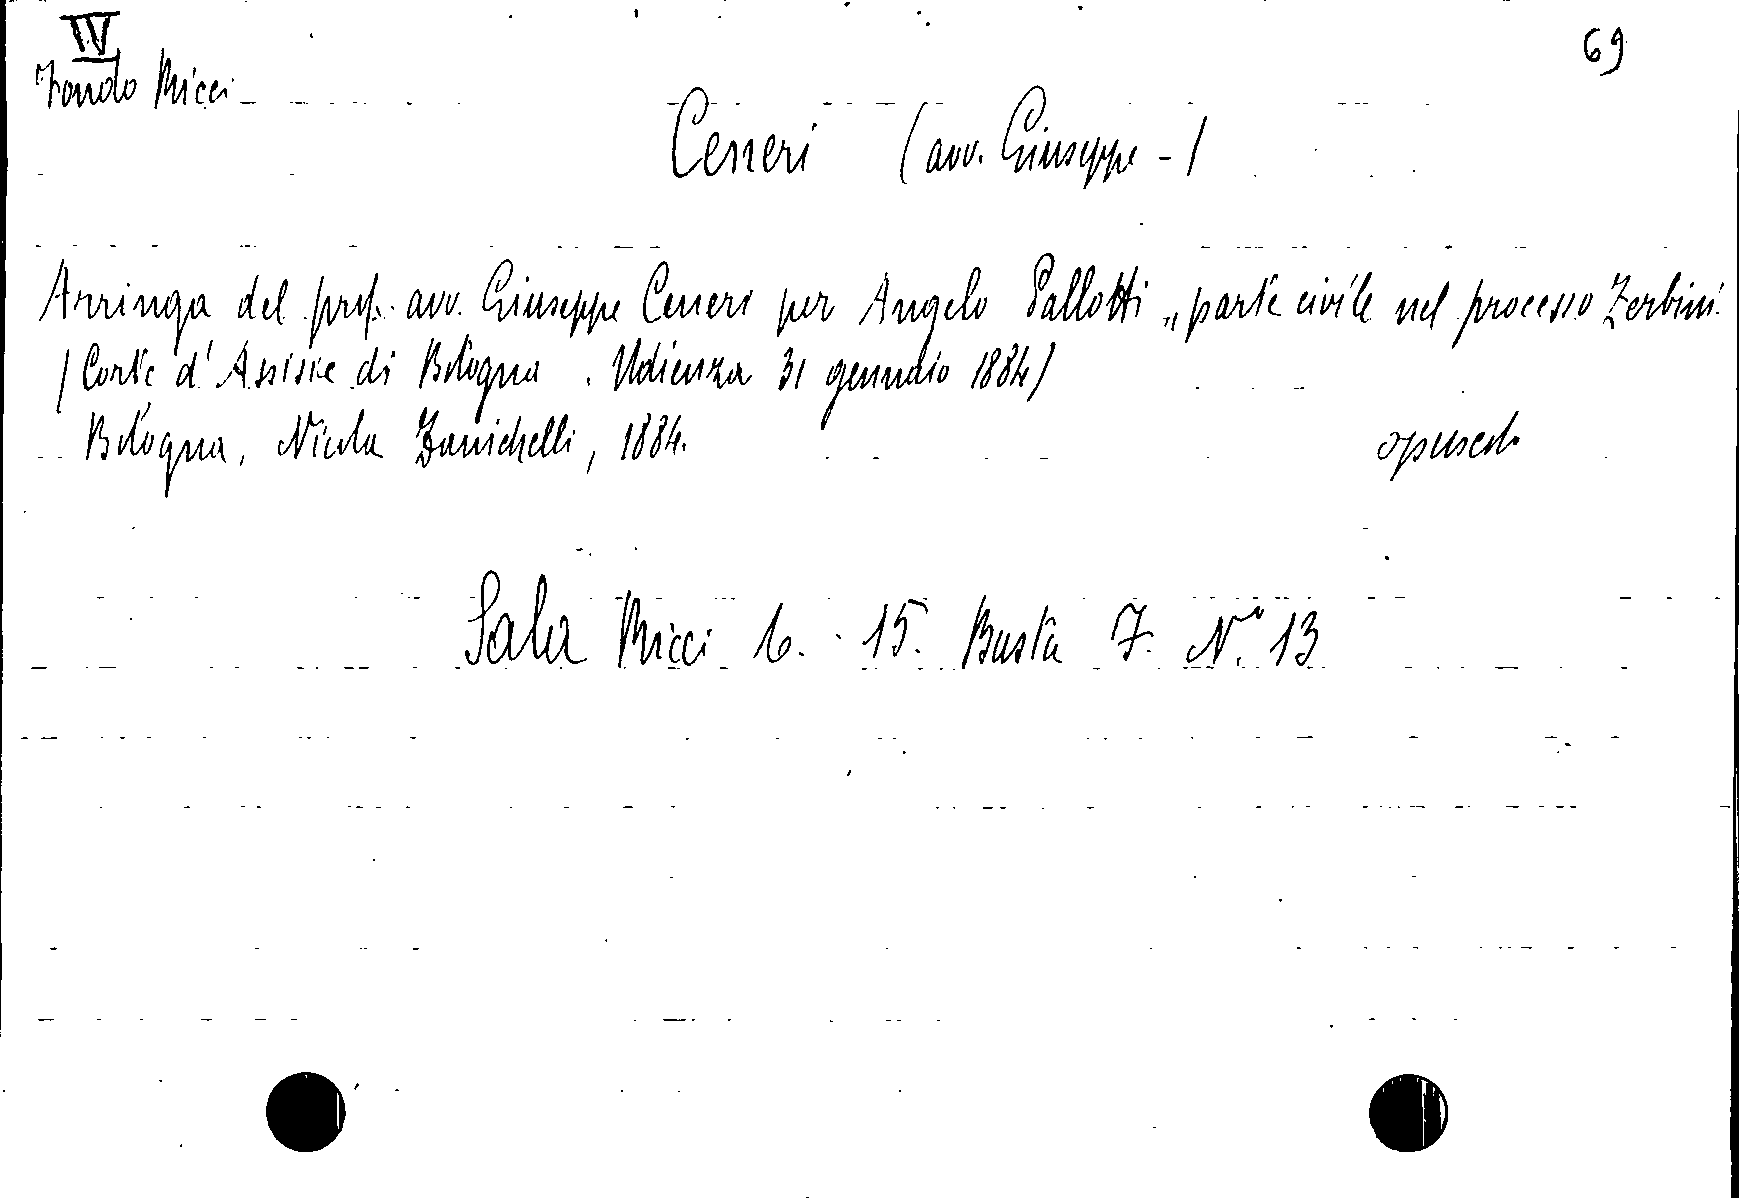 IV
69
Fondo Ricci
Ceneri (avv. Giuseppe -)
Arringa del prof. avv. Giuseppe Ceneri per Angelo Pallotti „ parte civile nel processo Zerbini
(Corte d'Assisie di Bologna . Udienza 31 gennaio 1884)
Bologna, Nicola Zanichelli, 1884. opuscolo
Sala Ricci 6. 15. Busta 7. N.° 13